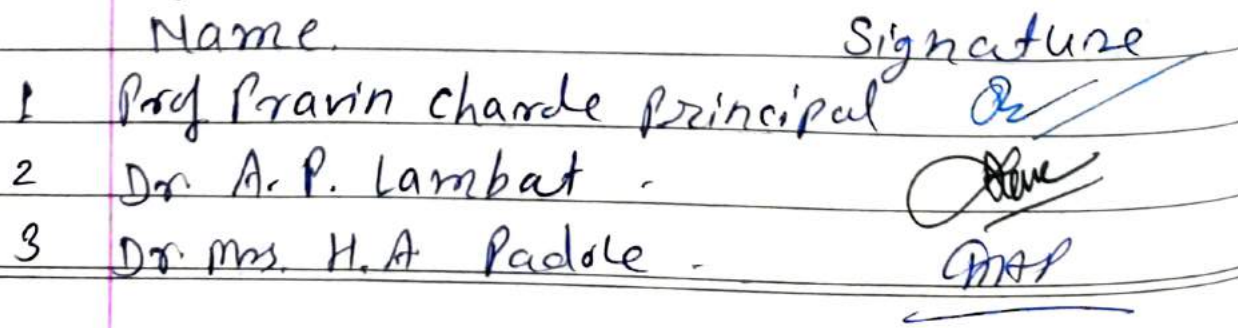 Name. Signature
1 Prof Pravin Charde Principal
2 Dr. A. P. Lambat .
3 Dr. Mrs. H. A Padole .